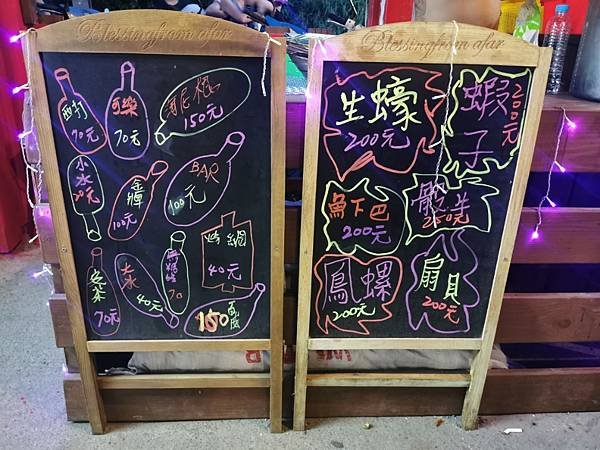 Blessing from afar
西打
70元
可樂
70元
海尼根
150元
小水
20元
金牌
100元
BAR
100元
烤網
40元
麥茶
70元
大水
40元
黑媽媽
70
150
Blessing from afar
生蠔
200元
蝦子
200元
魚下巴
200元
骰羊
250元
鳳螺
200元
扇貝
200元